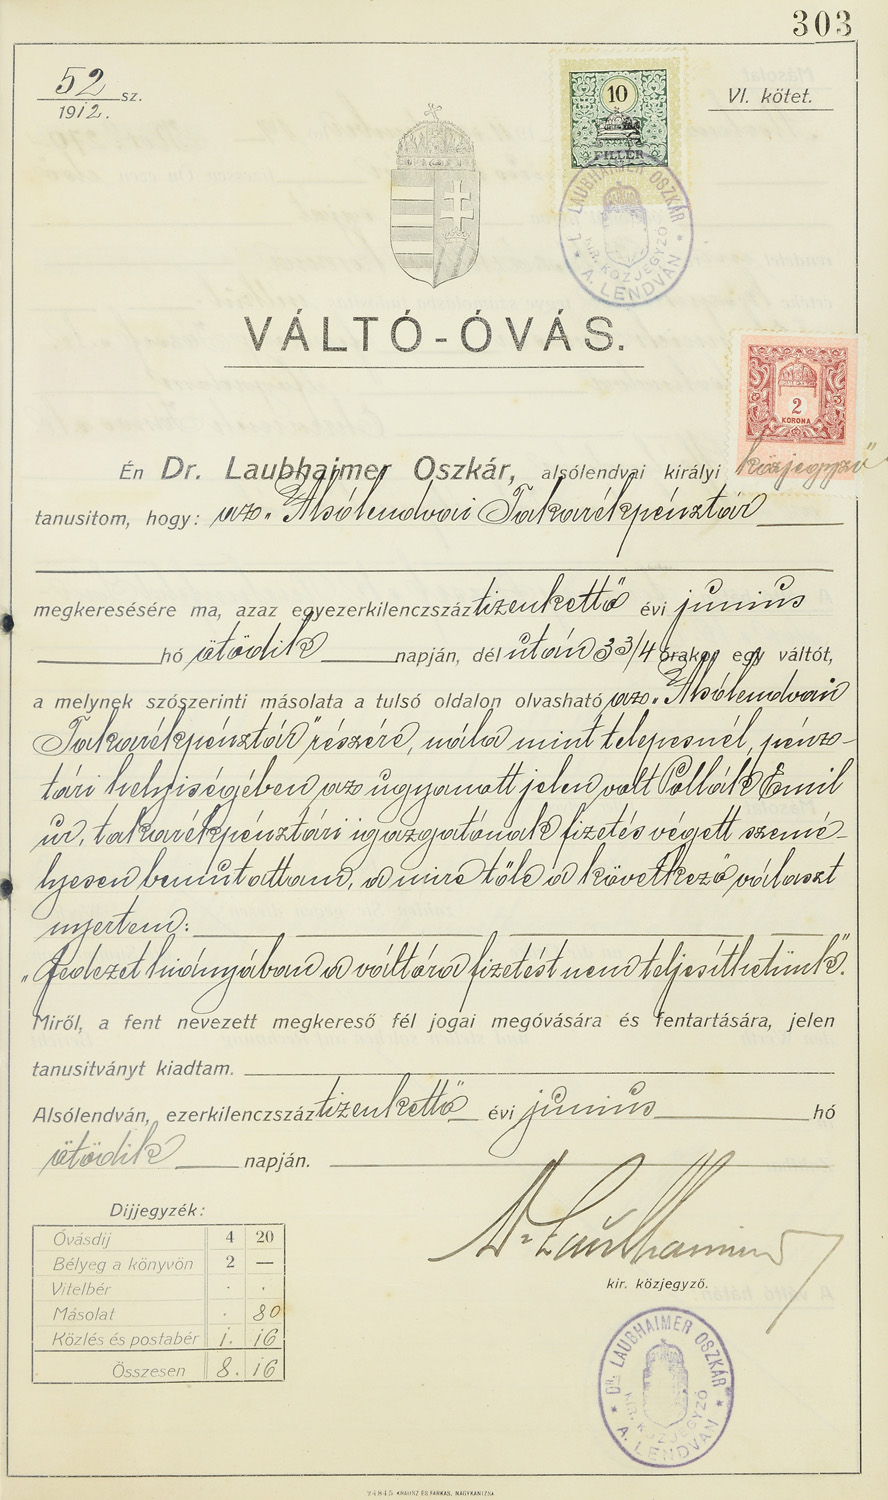 303
52 sz.
1912.
VI. kötet.
10
FILLÉR
DR. LAUBHAIMER OSZKÁR
KIR. KÖZJEGYZŐ
* A. LENDVÁN *
VÁLTÓ-ÓVÁS.
2
KORONA
Én Dr. Laubhaimer Oszkár, alsólendvai királyi közjegyző
tanusitom, hogy: az „Alsólendvai Takarékpénztár
megkeresésére ma, azaz egyezerkilenczszáz tizenkettő évi junius
hó ötödik napján, dél után 3 3/4 órakor egy váltót,
a melynek szószerinti másolata a tulsó oldalon olvasható az „Alsólendvai
Takarékpénztár" részére, nála mint telepesnél, pénz-
tári helyiségében az ugyanott jelen volt Pollák Emil
ur, takarékpénztári igazgatónak fizetés végett szemé-
lyesen bemutattam, a mire tőle a következő választ
nyertem:
„Fedezet hiányában a váltóra fizetést nem teljesíthetünk".
Miről, a fent nevezett megkereső fél jogai megóvására és fentartására, jelen
tanusitványt kiadtam.
Alsólendván, ezerkilenczszáz tizenkettő évi junius hó
ötödik napján.
Dr Laubhaimer
kir. közjegyző.
Dijjegyzék:
Óvásdij 4 20
Bélyeg a könyvön 2 —
Vitelbér . .
Másolat . 80
Közlés és postabér 1. 16
Összesen 8. 16
DR. LAUBHAIMER OSZKÁR
KIR. KÖZJEGYZŐ
* A. LENDVÁN *
KRAUSZ ÉS FARKAS, NAGYKANIZSA